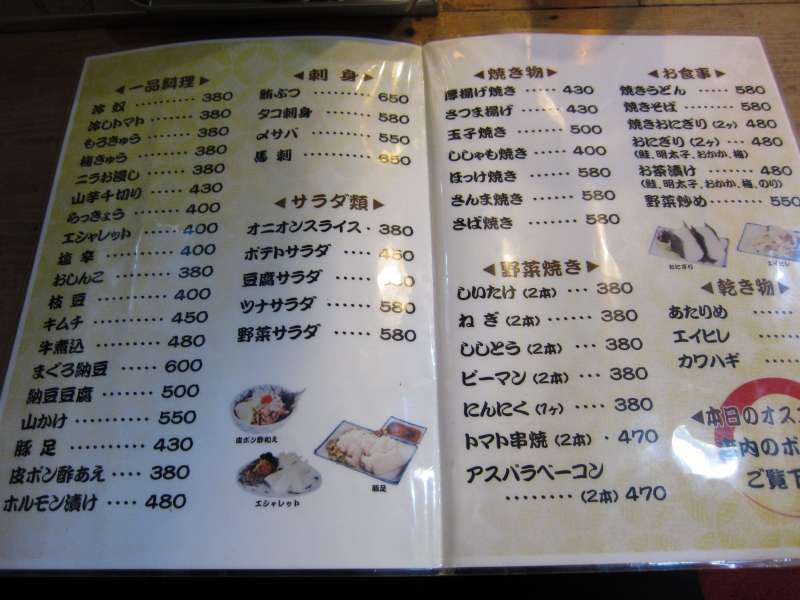 ◀一品料理▶
冷奴 ········ 380
冷しトマト ······ 380
もろきゅう ······ 380
梅きゅう ······· 380
ニラお浸し ······ 380
山芋千切り ····· 430
らっきょう ······ 400
エシャレット ····· 400
塩辛 ········ 400
おしんこ ······· 380
枝豆 ········ 400
キムチ ········ 450
牛煮込 ········ 480
まぐろ納豆 ····· 600
納豆豆腐 ······· 500
山かけ ········ 550
豚足 ········· 430
皮ポン酢あえ ···· 380
ホルモン漬け ···· 480
◀刺身▶
鮪ぶつ ········ 650
タコ刺身 ······ 580
〆サバ ······· 550
馬刺 ······· 650
◀サラダ類▶
オニオンスライス · 380
ポテトサラダ ···· 450
豆腐サラダ ·····
ツナサラダ ····· 580
野菜サラダ ····· 580
皮ポン酢和え
エシャレット
豚足
◀焼き物▶
厚揚げ焼き ···· 430
さつま揚げ ···· 430
玉子焼き ······ 500
ししゃも焼き ···· 400
ほっけ焼き ····· 580
さんま焼き ····· 580
さば焼き ······ 580
◀野菜焼き▶
しいたけ (2本) ···· 380
ねぎ (2本) ······ 380
ししとう (2本) ···· 380
ピーマン (2本) ···· 380
にんにく (1ヶ) ···· 380
トマト串焼 (2本) · 470
アスパラベーコン
········ (2本) 470
◀お食事▶
焼きうどん ····· 580
焼きそば ······ 580
焼きおにぎり (2ヶ) 480
おにぎり (2ヶ) ··· 480
(鮭、明太子、おかか、梅)
お茶漬け ······ 480
(鮭、明太子、おかか、梅、のり)
野菜炒め ······ 550
おにぎり
エイヒレ
◀乾き物▶
あたりめ ·····
エイヒレ ·····
カワハギ ····
◀本日のオス
内のボ
ご覧下